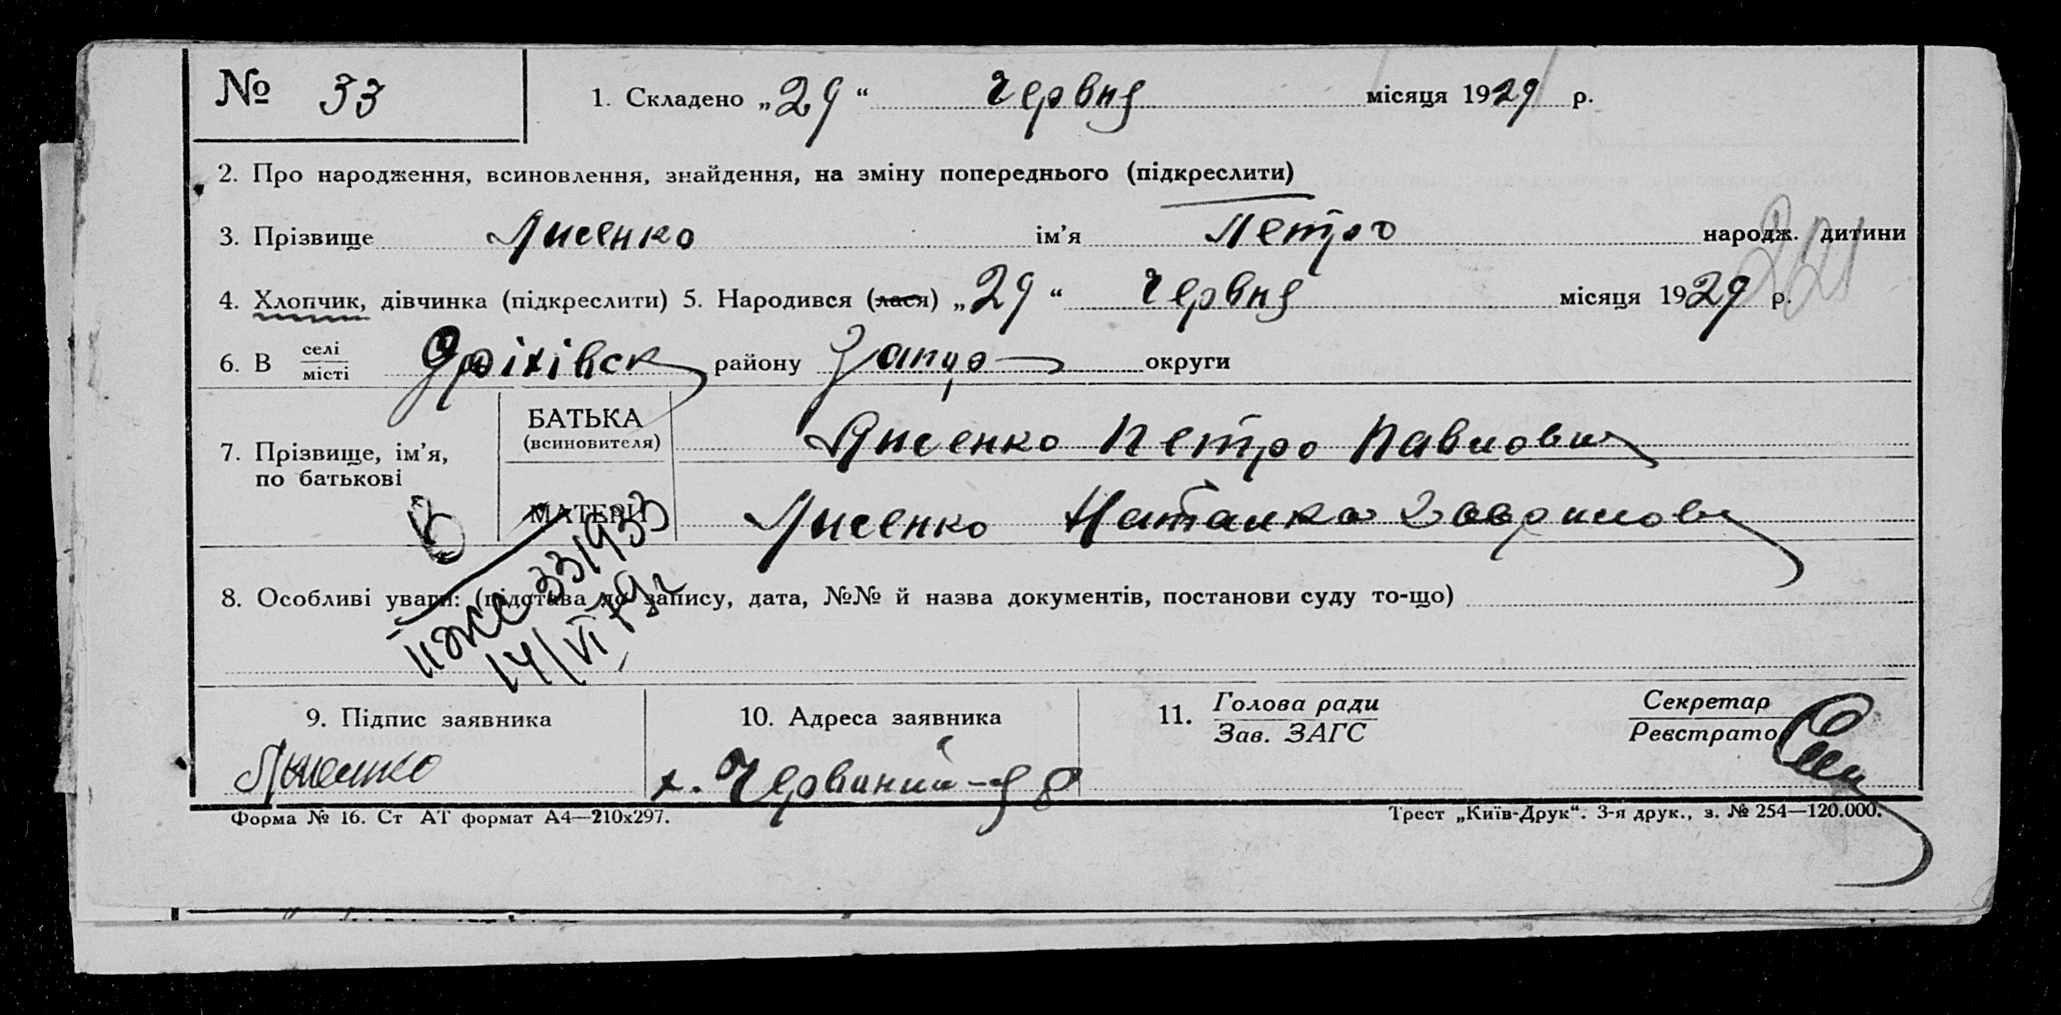 № 33 1. Складено „29“ Червня місяця 1929 р.
2. Про народження, всиновлення, знайдення, на зміну попереднього (підкреслити)
3. Прізвище Лисенко ім’я Петро народж. дитини
4. Хлопчик, дівчинка (підкреслити) 5. Народився (лася) „29“ Червня місяця 1929 р.
6. В селі місті Оріхівськ району Запор округи
7. Прізвище, ім’я, по батькові
БАТЬКА (всиновителя) Лисенко Петро Павлович
МАТЕРИ Лисенко Наталка Гаврилов
8. Особливі уваги: (підстава до запису, дата, №№ й назва документів, постанови суду то-що)
331933
14/VI
9. Підпис заявника 10. Адреса заявника 11. Голова ради Зав. ЗАГС Секретар Реєстратор
Лисенко х. Червоний-яр
Форма № 16. Ст АТ формат А4—210х297. Трест „Київ-Друк“. 3-я друк., з. № 254—120.000.